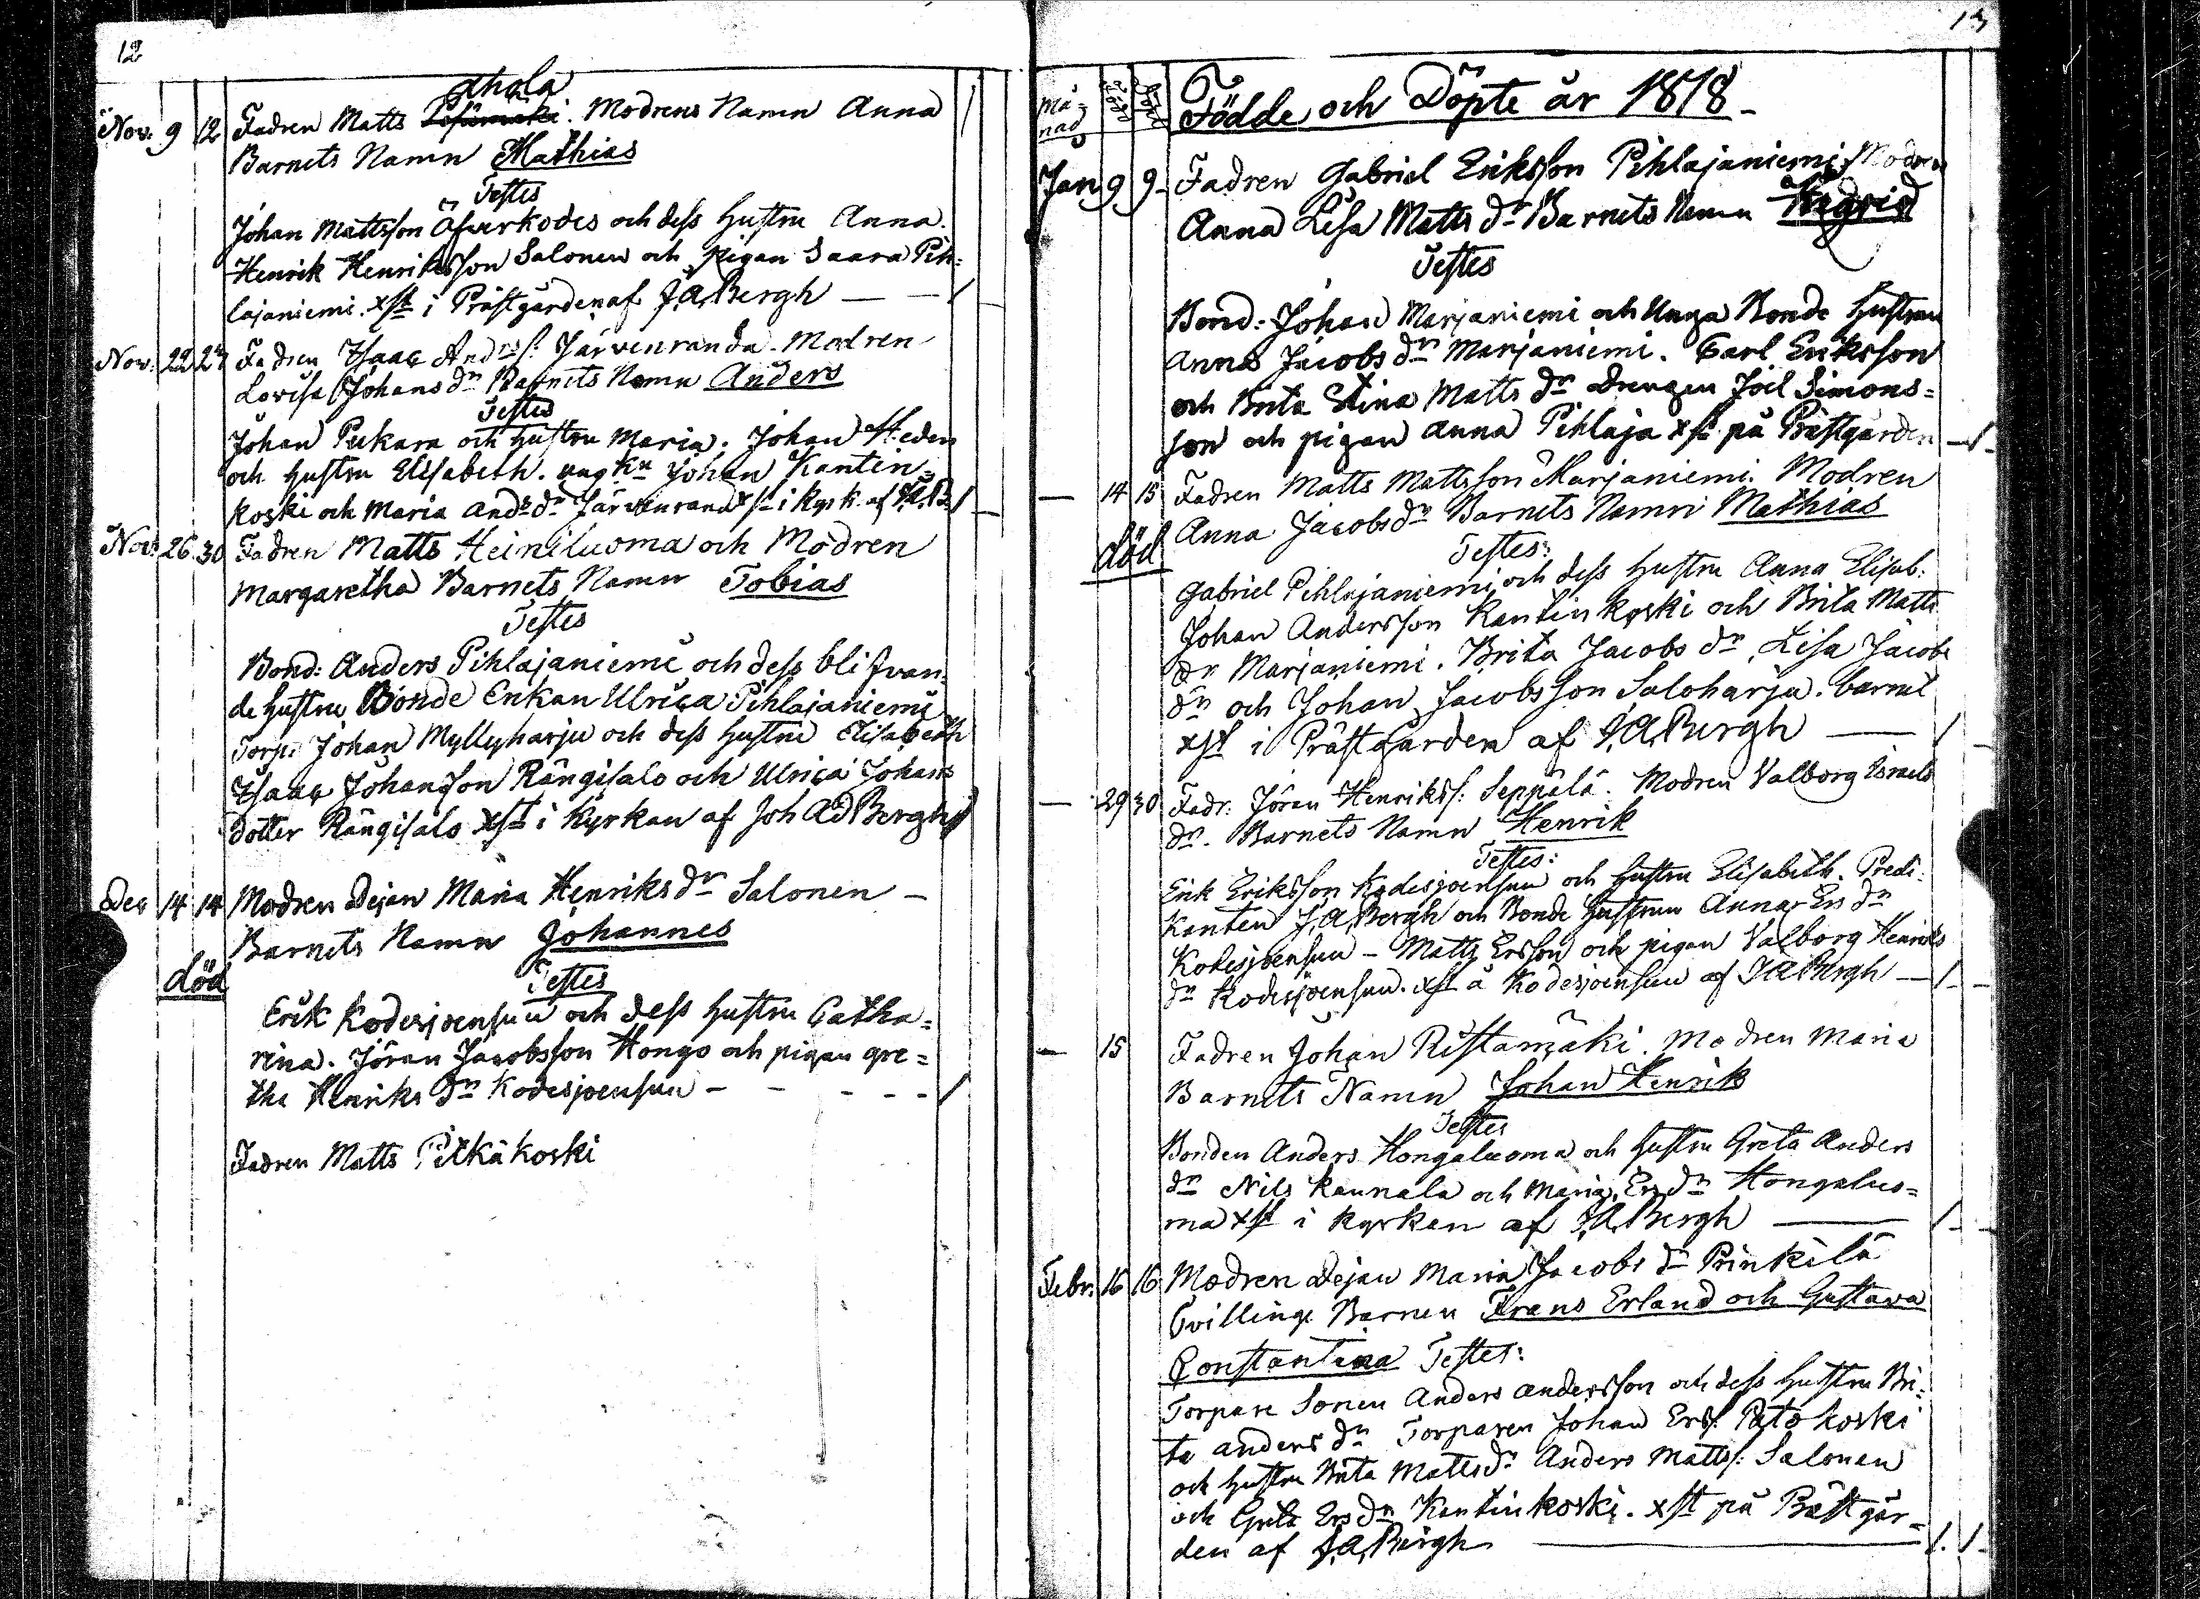 12
ahola
Nov. 9 12 Fadren Matts Modrens Namn Anna
Barnets Namn Mathias
Testes
Johan Mattsson Åfverkodes och dess Hustru Anna.
Henrik Henriksson Salonen och pigan Saara Pih=
lajaniemi. xst i Prästgården af J.A.Bergh — — /
Nov: 22 27 Fadren Isaac Andrs s: Järvenranda. Modren
Lovisa Johans dr Barnets Namn Anders
Testes
Johan Pukara och Hustru Maria. Johan Heden
och Hustru Elisabeth. ungkn Johan Kantin=
koski och Maria Andr dr Järvenrand xst i Kyrk. af J.A.B. /
Nov: 26 30 Fadren Matts Heiniluoma och Modren
Margaretha Barnets Namn Tobias
Testes
Bond: Anders Pihlajaniemi och dess blifvan=
de Hustru Bonde Enkan Ulrica Pihlajaniemi
Torp: Johan Myllyharju och dess Hustru Elisabeth
Isaac Johansson Rängisalo och Ulrica Johans
dotter Rängisalo xst i Kyrkan af Joh Ad Bergh /
Dec 14 14 Modren Dejan Maria Henriks dr Salonen —
Barnets Namn Johannes
död
Testes
Erik Kodesjoensuu och dess Hustru Catha=
rina. Jöran Jacobsson Hongo och pigan gre=
tha Henriks dr Kodesjoensuu - - - - - /
Fadren Matts Pitkäkoski
13
Må=
nad född döpt Födde och Döpte år 1818 -
Jan 9 9 - Fadren Gabriel Eriksson Pihlajaniemi Modren
Anna Lisa Matts dr Barnets Namn
Testes
Bond: Johan Marjaniemi och Unga Bonde Hustrun
Anna Jacobs dr Marjaniemi. Carl Eriksson
och Brita Stina Matts dr drengen Joel Simons=
son och pigan Anna Pihlaja xst på Prästgården — / -
— 14 15 Fadren Matts Mattsson Marjaniemi. Modren
Anna Jacobs dr Barnets Namn Mathias
död
Testes:
Gabriel Pihlajaniemi och dess Hustru Anna Elisab:
Johan Andersson Kantinkoski och Brita Matts
dr Marjaniemi. Brita Jacobs dr, Lisa Jacobs
dr och Johan Jacobsson Saloharju. barnet
xst i Prästgården af J.A.Bergh — /
— 29 30 Fadr: Jöran Henrikss: Seppälä. Modren Valborg Israels
dr. Barnets Namn Henrik
Testes:
Erik Eriksson Kodesjoensuu och Hustru Elisabeth. Predi=
kanten J.A.Bergh och Bonde Hustrun Anna Ers dr
Kodesjoensuu - Matts Ersson och pigan Valborg Henriks
dr Kodesjoensuu. xst å Kodesjoensuu af J A Bergh — / -
— 15 Fadren Johan Ristamäki. Modren Maria
Barnets Namn Johan Henrik
Testes
Bonden Anders Hongaluoma och Hustru Greta Anders
dr Nils Kaunala och Maria Ers dr Hongaluo=
ma xst i Kyrkan af J.A.Bergh — / -
Febr: 16 16 Modren Dejan Maria Jacobs dr Prinkilä
Tvillinge Barnen Frans Erland och Gustava
Constantina Testes:
Torpare Sonen Anders Andersson och dess Hustru Bri=
ta Anders dr Torparen Johan Erss: Patokoski
och Hustru Brita Matts dr Anders Mattss: Salonen
och Greta Ers dr Kantinkoski. xst på Prästgår=
den af J.A.Bergh — / . / -